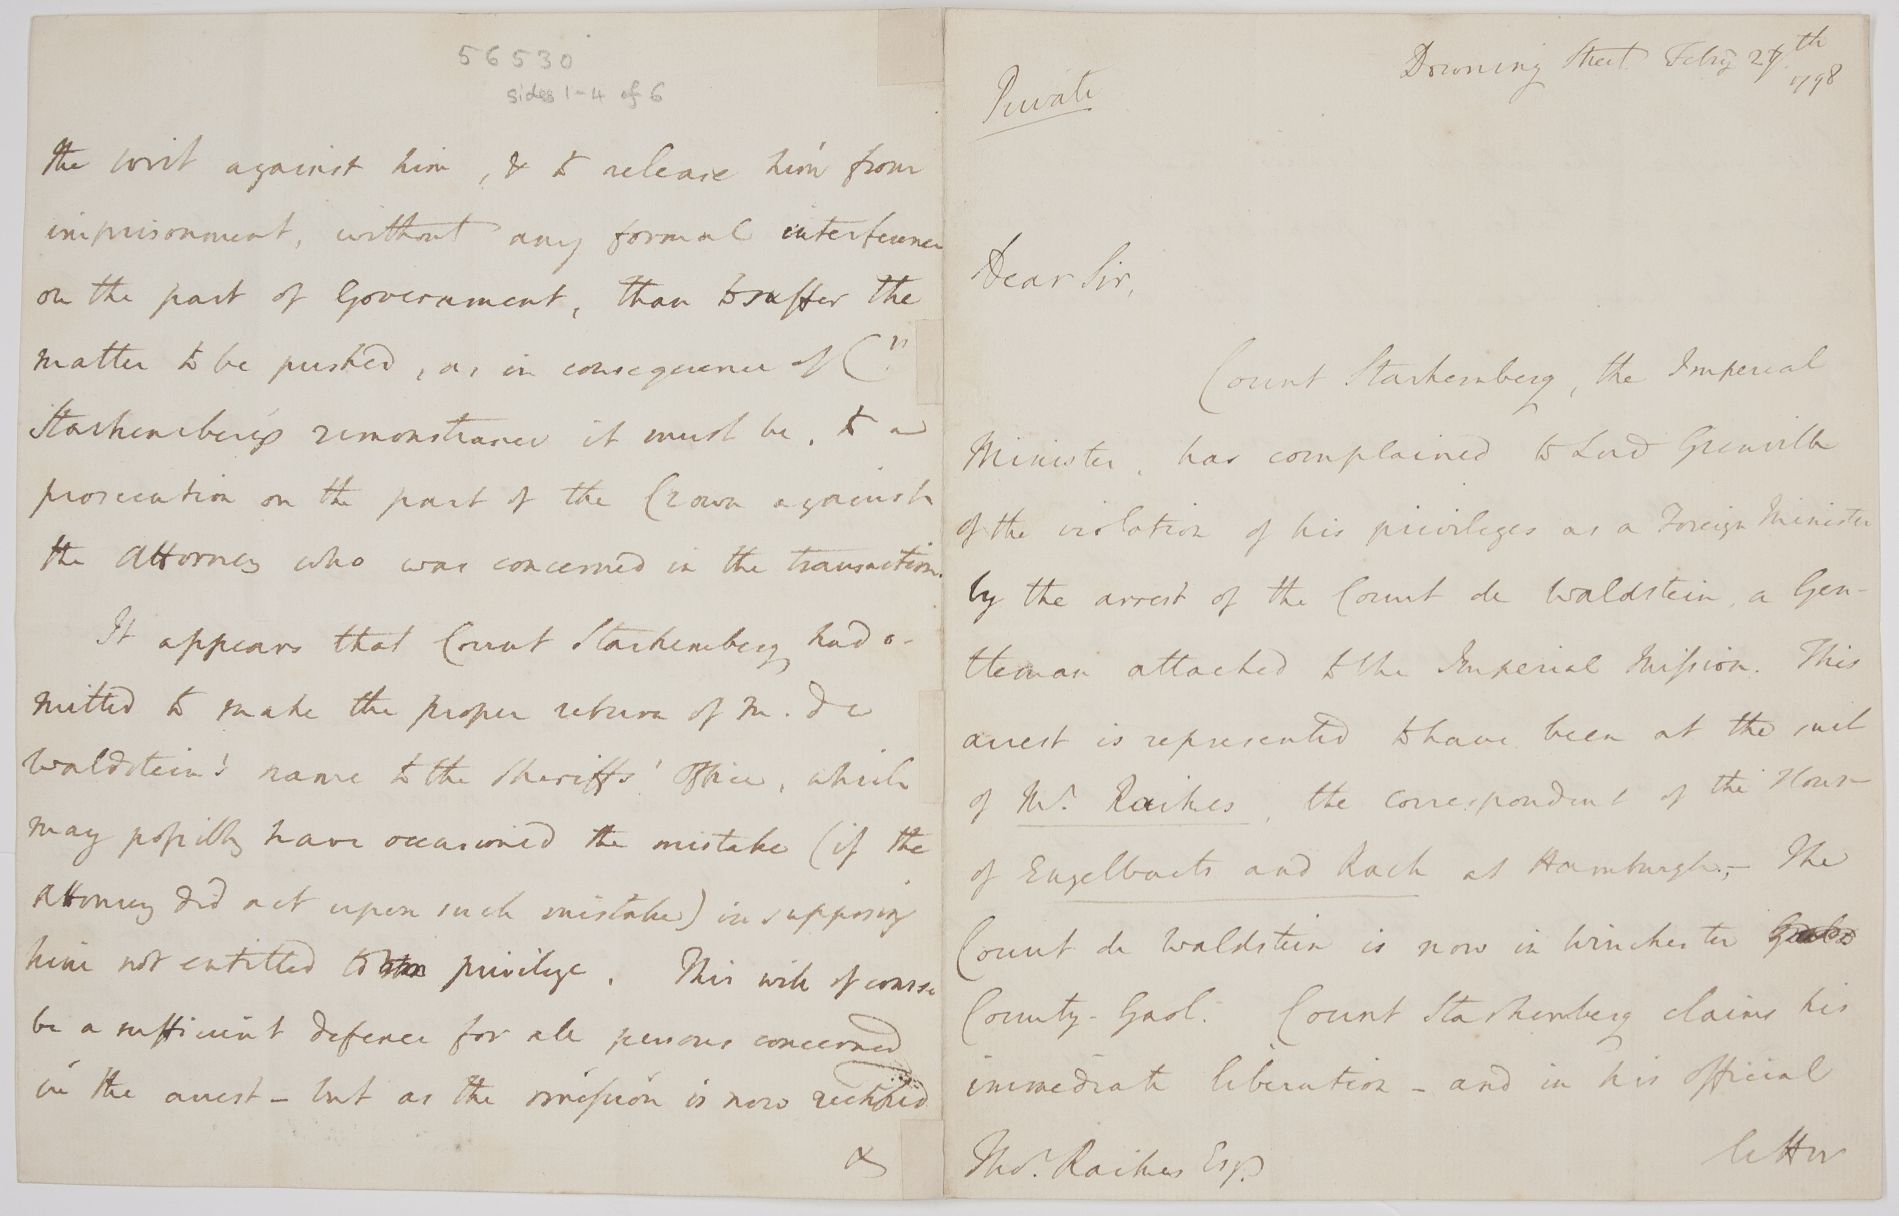 56530
sides 1-4 of 6
the writ against him, & to release him from
imprisonment, without any formal interference
on the part of Government, than to suffer the
matter to be pushed, as in consequence of Ct.
Starhemberg's remonstrance it must be, to a
prosecution on the part of the Crown against
the Attorney who was concerned in the transaction.
It appears that Count Starhemberg had o-
mitted to make the proper return of M. de
Waldstein's name to the Sheriffs' Office, which
may possibly have occasioned the mistake (if the
Attorney did act upon such mistake) in supposing
him not entitled to privilege. This will of course
be a sufficient defence for all persons concerned
in the arrest - but as the omission is now rectified
&
Private
Downing Street Feby 27th
1798
Dear Sir,
Count Starhemberg, the Imperial
Minister, has complained to Lord Grenville
of the violation of his privileges as a Foreign Minister
by the arrest of the Count de Waldstein, a Gen-
tleman attached to the Imperial Mission. This
arrest is represented to have been at the suit
of Mr. Raikes, the correspondent of the House
of Engelbarts and Rack at Hamburgh; - The
Count de Waldstein is now in Winchester
County-Gaol. Count Starhemberg claims his
immediate liberation - and in his official
Thos. Raikes Esq.
letter